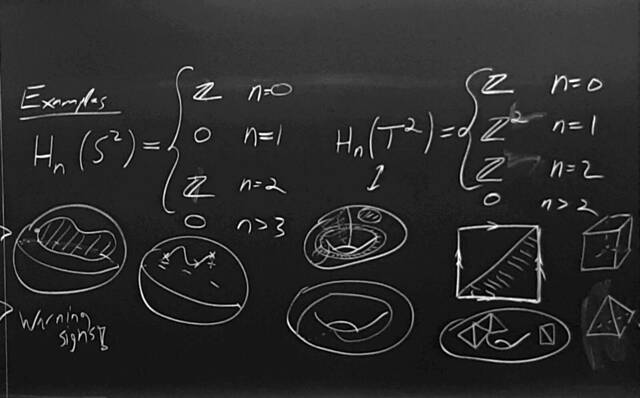 Examples
H_n(S²) = { ℤ n=0
0 n=1
ℤ n=2
0 n>3
H_n(T²) = { ℤ n=0
ℤ² n=1
ℤ n=2
0 n>2
Warning
signs!